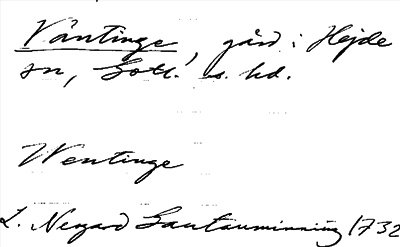 Väntinge, gård i Hejde
sn, Gotl. s. hd.
Wentinge
L. Nergard Gautauminning 1732